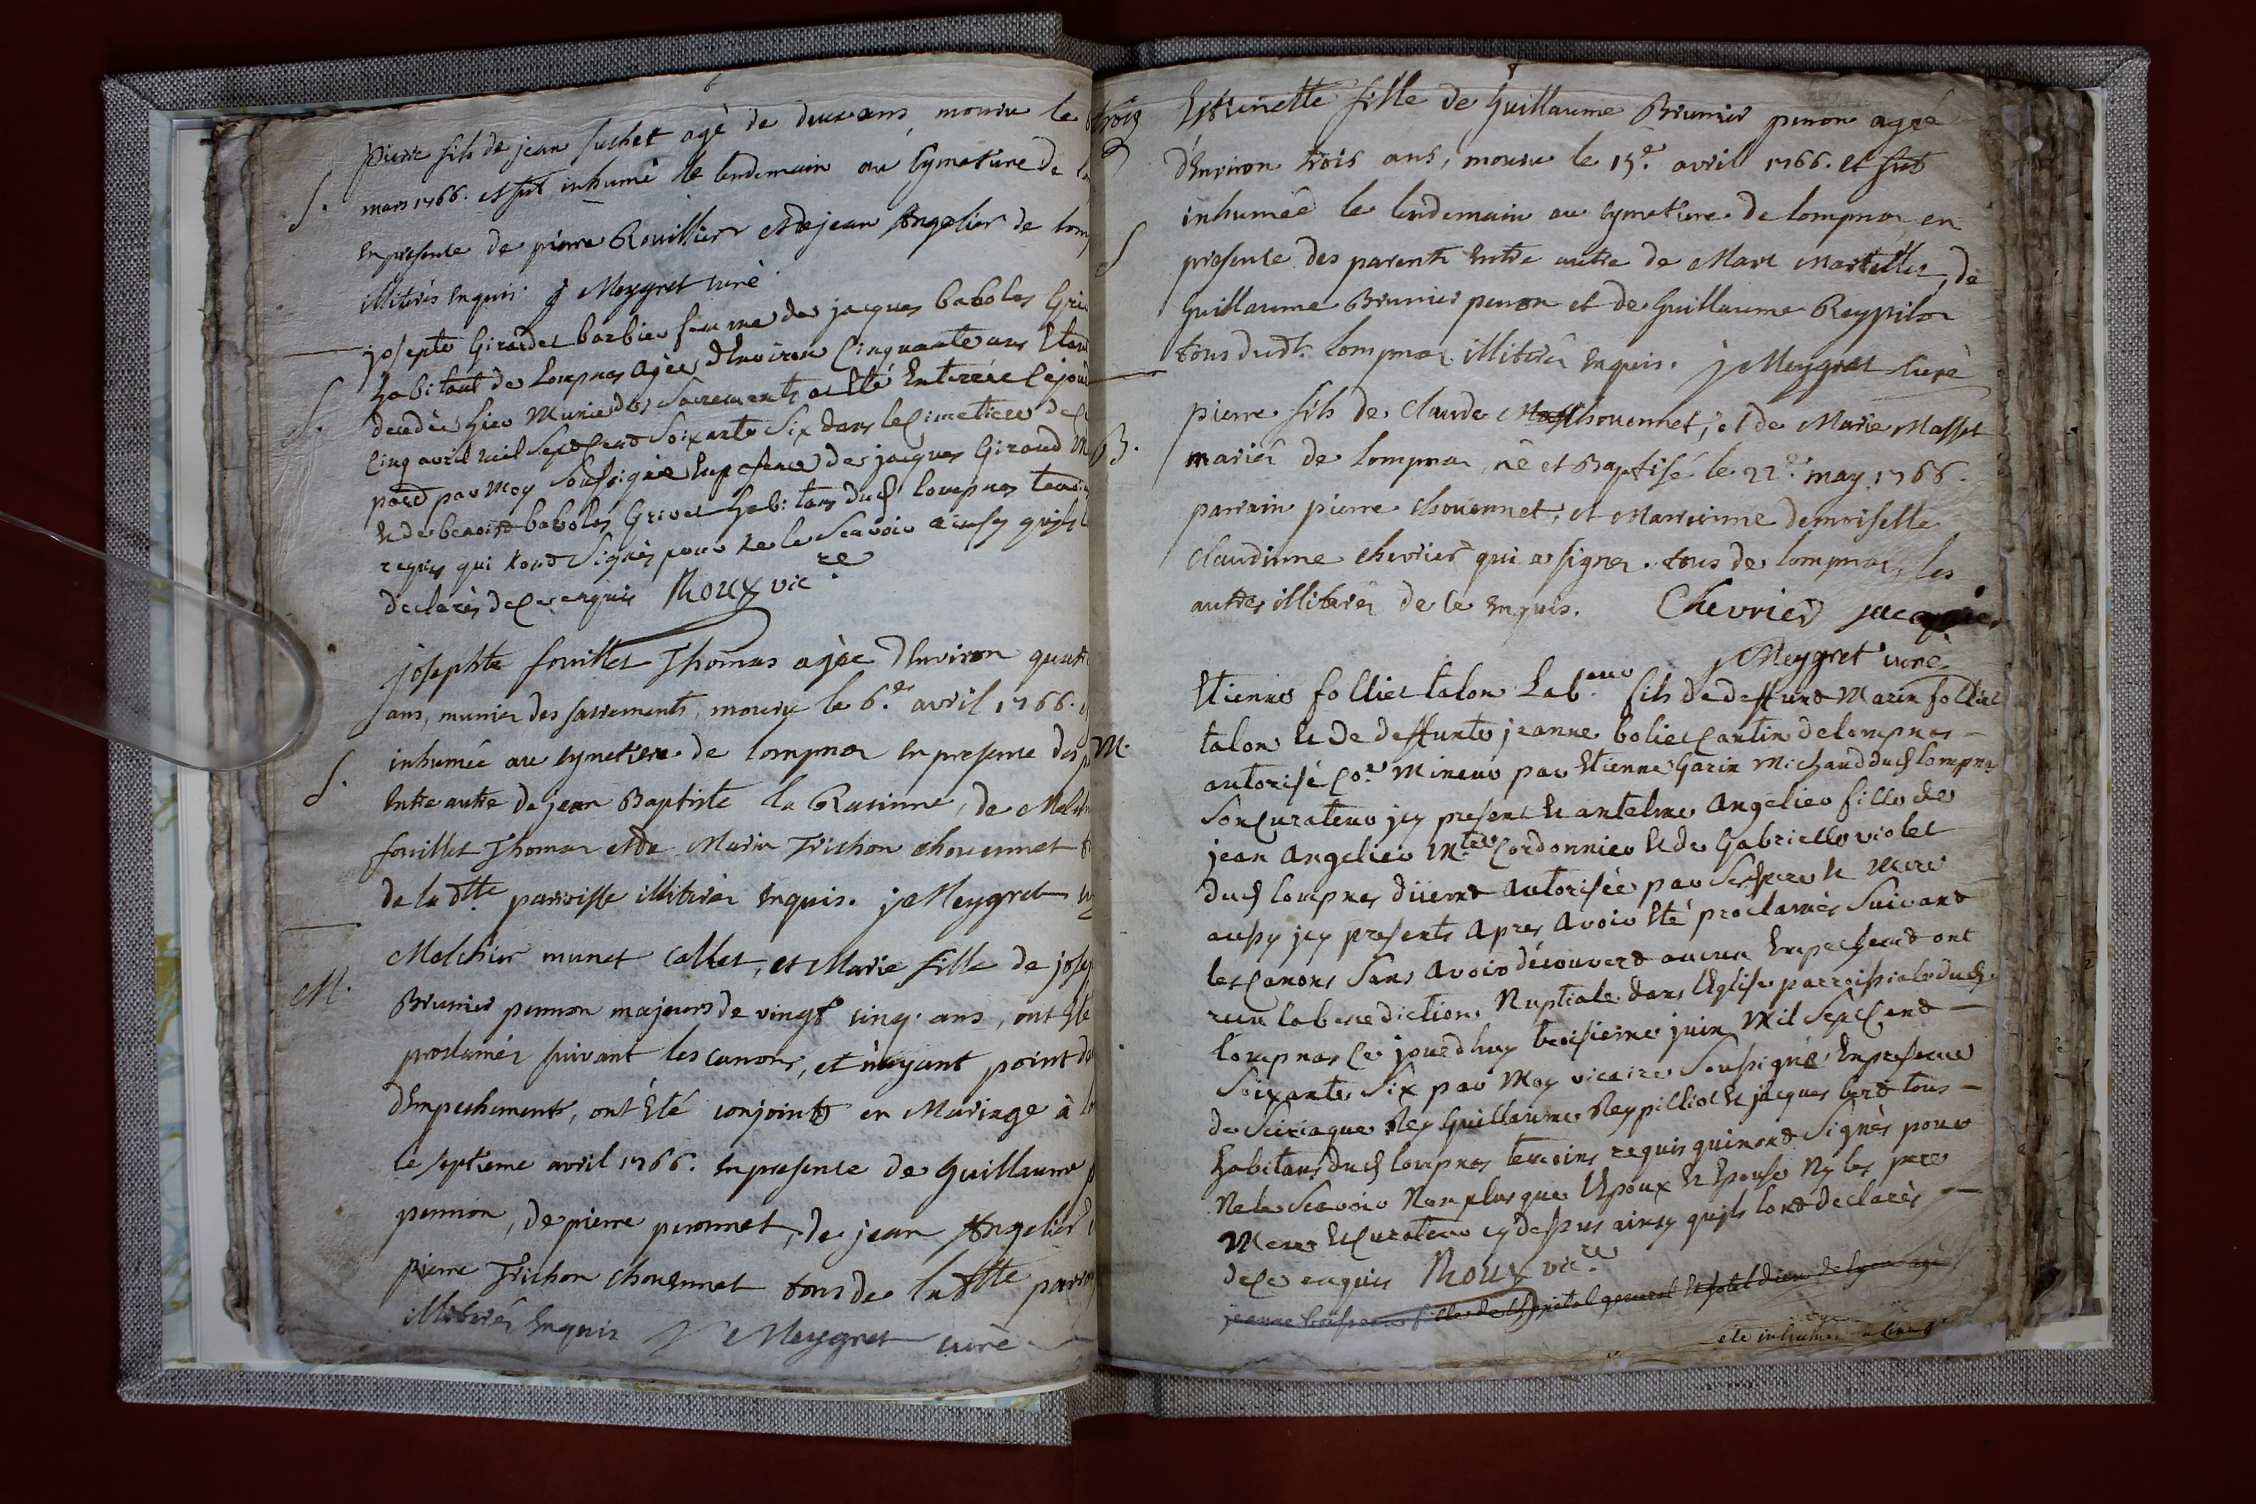 pierre fils de jean suchet agé de deux ans mouru le trois
S.
mars 1766. et fut inhumé le lendemain au Cymetiere de
en presence de pierre Rouillier et de jean Angelier de
illiterés enquis. J Meygret curé
josepte Girardet barbier femme de jacques babolas
S.
habitant de Lompnas agée d'Environ Cinquante ans
decedée hier Munie des Sacrements a Eté Enterrée Ce jour
Cinq avril mil Sept Cent Soixante Six dans le Cimetiere
par Moy Soussigné En presence de jacques Giroud
Et de benoist babolas Grivel habitans dud Lompnas
requis qui n'ont Signés pour ne le Scavoir ainsy qu'ils
declarés de Ce enquis Roux vicre
josephte fouillet Thomas agée d'Environ
ans, munier des sacrements, mouru le 6e avril 1766.
S.
inhumée au cymetiere de Lompnas en presence des
Entre autre de jean Baptiste la Racinne, de
fouillet Thomas et de Marin Trichon chouennet
de la dtte parroisse illiterés enquis. J Meygret
M.
Melchior munet Collet, et Marie fille de
Brunier pennon majeurs de vingt cinq ans, ont Eté
proclamés suivant les canons, et n'ayant point
d'Empechements, ont Eté conjoints en Mariage à
le septieme avril 1766. en presence de Guillaume
pennon, de pierre peronnet, de jean Angelier
pierre Trichon chouennet tous de la dtte
illiterés enquis J Meygret curé
fille de Guillaume Brunier penon agée
d'Environ trois ans, mouru le 15e avril 1766. et fut
S
inhumée le lendemain au cymetiere de Lompnas en
presence des parents Entre autre de Marc Martellet, de
Guillaume Brunier penon et de Guillaume Reypiler
tous dudt. Lompnas illiterés enquis. J Meygret Curé
B.
pierre fils de Claude chouennet, et de Marie Masset
mariés de Lompnas, né et Baptisé le 22e may 1766.
parrain pierre chouennet, et Marreinne demoiselle
Claudinne chevrier qui a signer. tous de Lompnas, les
autres illiterés de ce enquis. Chevrier
J Meygret curé
Etienne folliet talon Labeur fils de deffunt Marin folliet
M.
talon Et de deffunte jeanne boliet Cantin de Lompnas
autorisé Coe Mineur par Etienne Garin Michaud dud Lompnas
Son Curateur jcy present Et antelme Angelier fille de
jean Angelier Mtre Cordonnier Et de Gabrielle violet
dud Lompnas duemt autorisée par Ses pere Et Mere
aussy jcy presents apres avoir Eté proclamés Suivant
les Canons Sans avoir découvert aucun Empechemt ont
recu la benediction Nuptiale dans l'Eglise parroissiale dud
Lompnas Ce jourdhuy troisieme juin Mil Sept Cent
Soixante Six par Moy vicaire Soussigné En presence
de Ciriaque Rey Guillaume Reypilliot Et jacques tous
habitans dud Lompnas temoins requis qui n'ont Signés pour
Ne le Scavoir Non plus que l'Epoux Et Epouse Ny les pere
Mere Et Curateur cy dessus ainsy qu'ils l'ont declarés
de Ce enquis Roux vicre
jeanne fille de l'hopital general Et hotel dieu de Lyon agé
eté inhumée